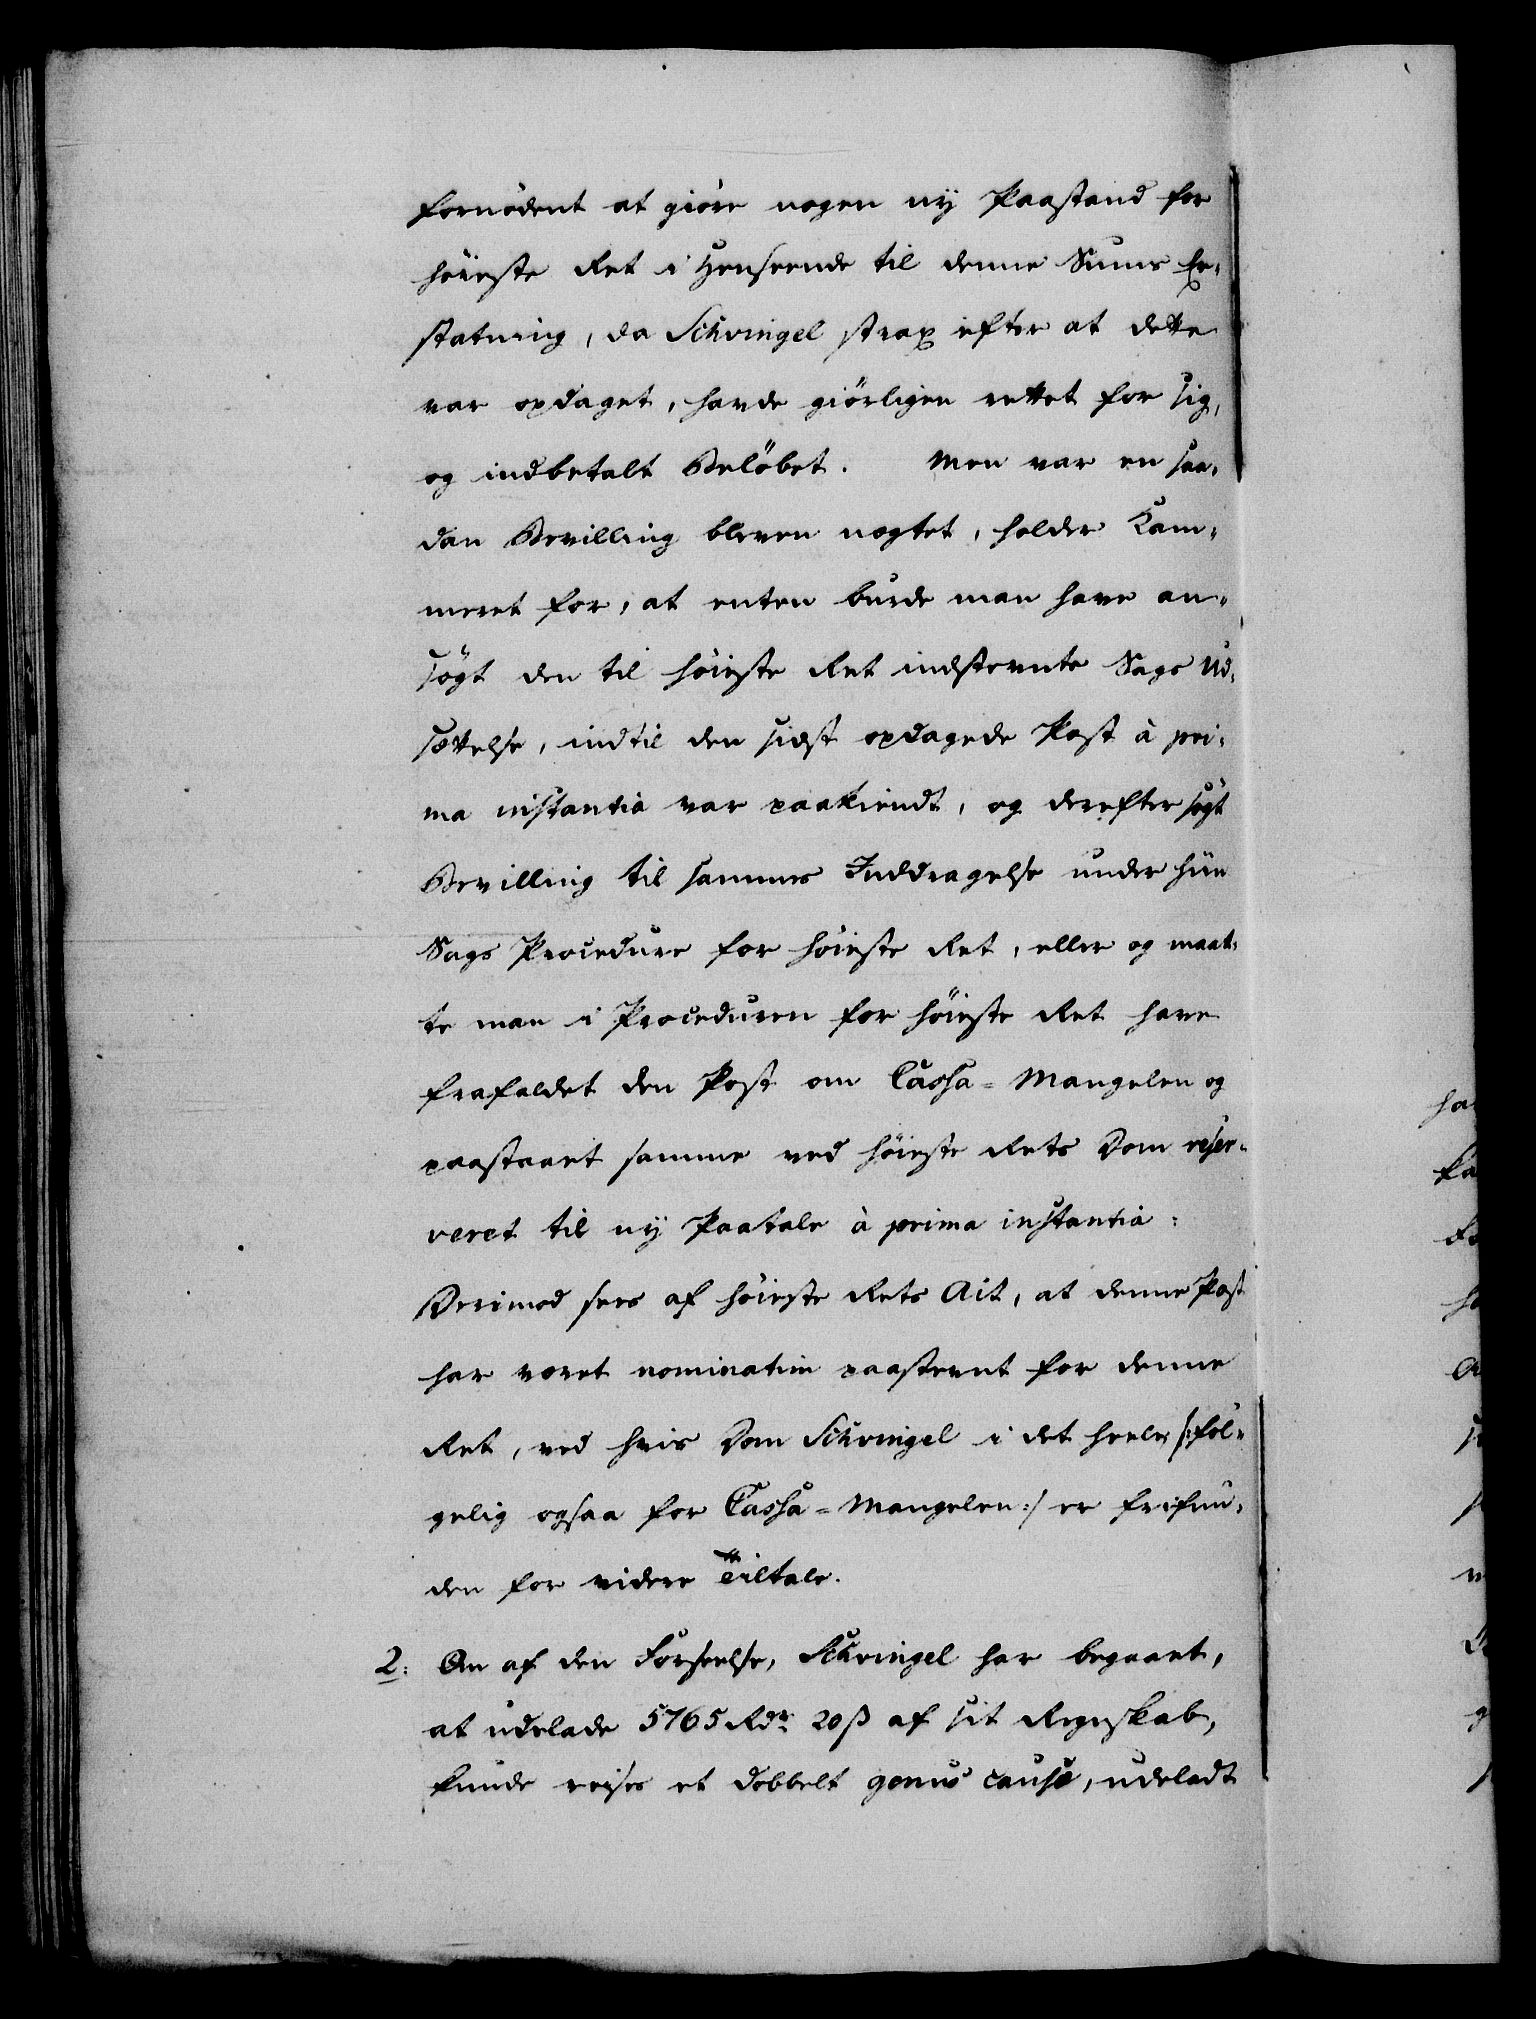 fornödent at giöre nogen nÿ Paastand for
höieste Ret i Henseende til denne Sums Er-
statning, da Schvingel strax efter at dette
var opdaget, havde giörligen rettet for sig,
og indbetalt Belöbet. Men var en saa-
dan Bevilling bleven nægtet, holder Kam-
meret for, at enten burde man have an-
sögt den til höieste Ret indstevnte Sags Ud-
sættelse, indtil den sidst opdagede Post à pri-
ma instantia var paakiendt, og derefter sögt
Bevilling til sammes Inddragelse under hün
Sags Procedure for höieste Ret, eller og maat-
te man i Proceduren for höieste Ret have
frafaldet den Post om Cassa-Mangelen og
paastaaet samme ved höieste Rets Dom reser-
veret til nÿ Paatale à prima instantia:
Derimod sees af höieste Rets Act, at denne Post
har været nominatim paastevnt for denne
Ret, ved hvis Dom Schvingel i det heele /:föl-
gelig ogsaa for Cassa-Mangelen:/ er frifun-
den for videre Tiltale.
2: Om af den Forseelse, Schvingel har begaaet,
at udelade 5765 Rdr 20 ß af sit Regnskab,
kunde reises et dobbelt genus causæ, udeladt